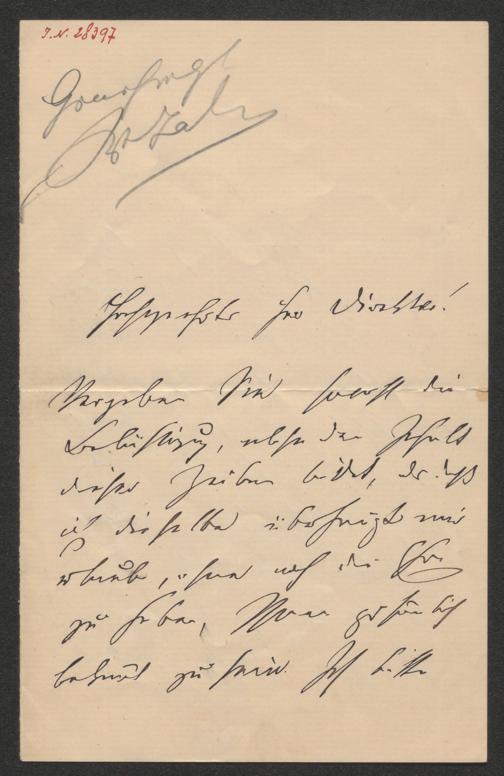 I.N. 28397
Hochgeehrter Herr Direktor!
Vergeben Sie sowohl die
Belästigung, welche der Inhalt
dieser Zeilen bildet, als daß
ich dieselbe überhaupt mir
erlaube, ohne noch die Ehre
zu haben, Ihnen persönlich
bekannt zu sein. Ich bitte